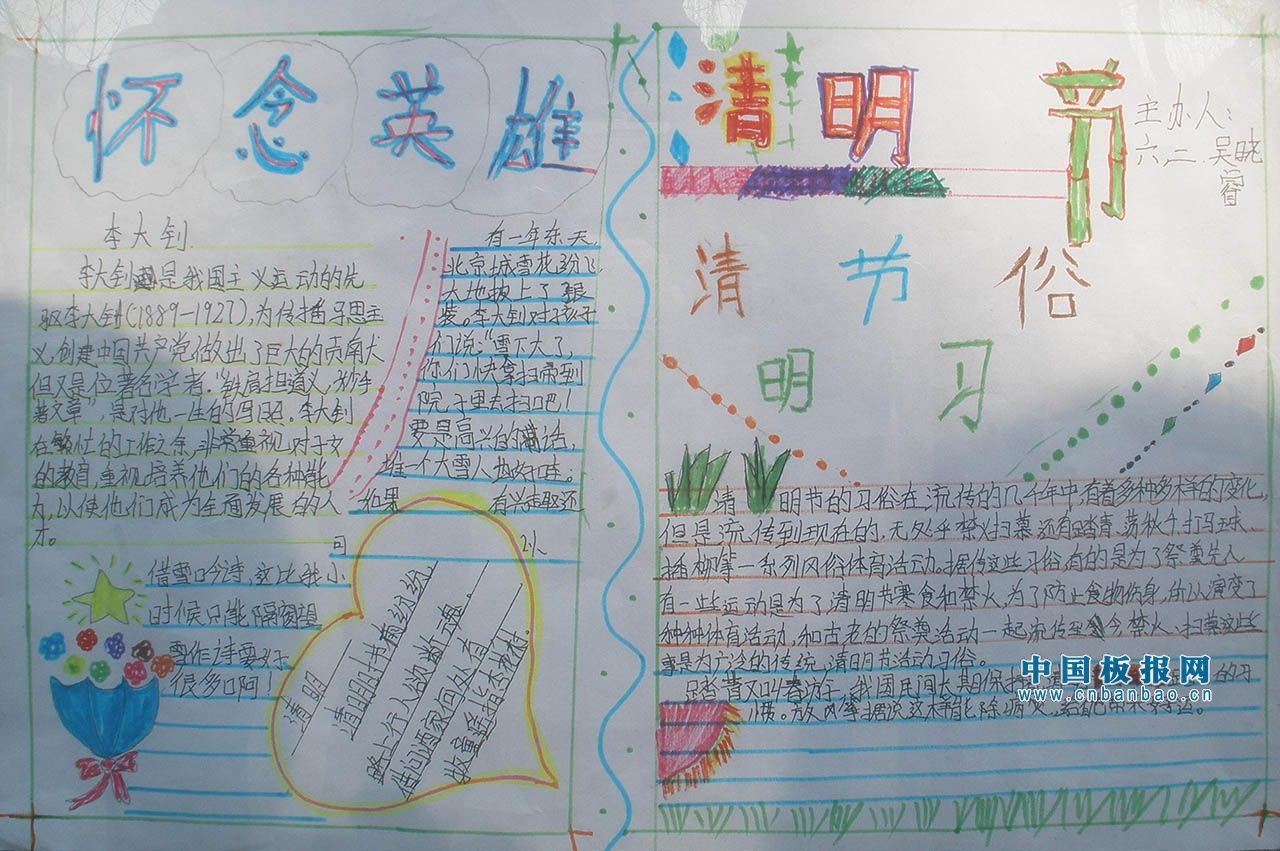 怀念英雄
李大钊
李大钊是我国主义运动的先
驱李大钊(1889-1927),为传播马思主
义,创建中国共产党做出了巨大的贡献大
但又是位著名学者."铁肩担道义,妙手
著文章",是对他一生的写照。李大钊
在繁忙的工作之余,非常重视对子女
的教育,重视培养他们的各种能
力,以使他们成为全面发展的人
才。
有一年冬天,
北京城雪花纷飞
大地披上了银
装。李大钊对孩子
们说:"雪下大了,
你们快拿扫帚到
院子里去扫吧!
要是高兴的话,
堆一个大雪人也好哇。
如果 有兴趣还
可 以
借雪吟诗,这比我小
时候只能隔窗望
雪作诗要好
很多啊!
清明
清明时节雨纷纷,
路上行人欲断魂。
借问酒家何处有
牧童遥指杏花村.
清明节
主办人:
六二 吴晓
睿
清明节习俗
清明节的习俗在流传的几千年中,有着多种多样的变化,
但是流传到现在的,无外乎禁火扫墓,还有踏青、荡秋千、打马球、
插柳等一系列风俗体育活动.据传这些习俗,有的是为了祭奠先人
有一些运动是为了清明节寒食和禁火,为了防止食物伤身,所以演变了
种种体育活动,和古老的祭奠活动一起流传至今.禁火、扫墓这些
事是为亡灵的传统,清明节活动习俗。
踏青又叫春游,我国民间长期保持 的习
惯。放风筝据说这样能除病
中国板报网
www.cnbanbao.cn